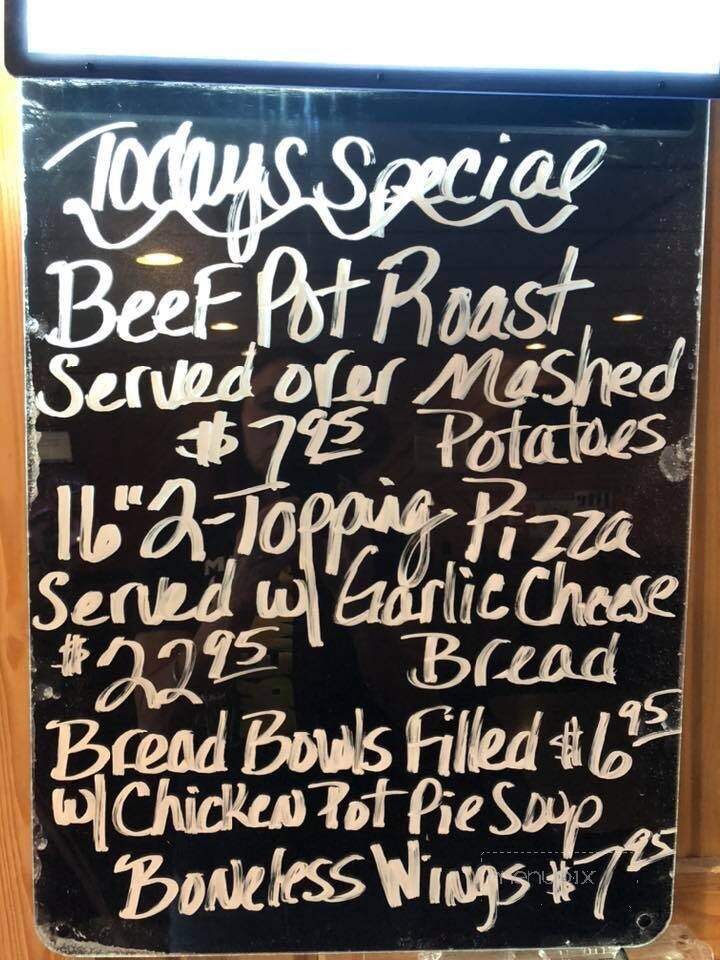 Todays Special
Beef Pot Roast
Served over Mashed
$7.95 Potatoes
16" 2-Topping Pizza
Served w/ Garlic Cheese
$22.95 Bread
Bread Bowls Filled $6.95
w/ Chicken Pot Pie Soup
Boneless Wings $7.95
menupix